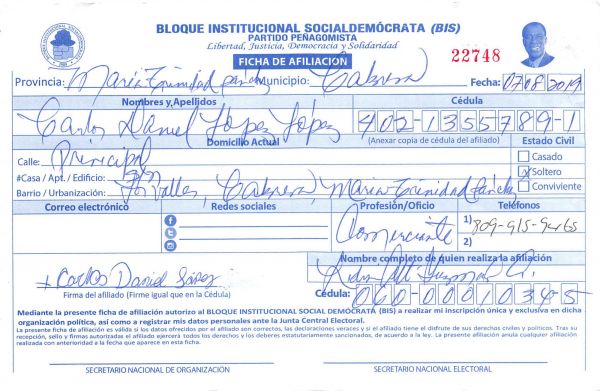 BLOQUE INSTITUCIONAL SOCIALDEMÓCRATA (BIS)
PARTIDO PEÑAGOMISTA
Libertad, Justicia, Democracia y Solidaridad
FICHA DE AFILIACION
22748
Provincia: María Trinidad Sánchez Municipio: Cabrera Fecha: 07/08/2019
Nombres y Apellidos Cédula
Carlos Daniel López López 402-1355789-1
Domicilio Actual (Anexar copia de cédula del afiliado) Estado Civil
Calle: Principal Casado
#Casa / Apt. / Edificio: S/N Soltero
Barrio / Urbanización: Los Valles, Cabrera, María Trinidad Sánchez Conviviente
Correo electrónico Redes sociales Profesión/Oficio Teléfonos
Comerciante 1) 809-915-
2)
Nombre completo de quien realiza la afiliación
Carlos Daniel López Guzmán
Firma del afiliado (Firme igual que en la Cédula) Cédula: 060-0001034-5
Mediante la presente ficha de afiliación autorizo al BLOQUE INSTITUCIONAL SOCIAL DEMÓCRATA (BIS) a realizar mi inscripción única y exclusiva en dicha
organización política, así como a registrar mis datos personales ante la Junta Central Electoral.
La presente ficha de afiliación es válida si los datos ofrecidos por el afiliado son correctos, las declaraciones veraces y si el afiliado tiene el disfrute de sus derechos civiles y políticos. Tras su
recepción, sello y firmas autorizadas el afiliado ejercerá todos los derechos y los deberes estatutariamente sancionados, de acuerdo a la ley. La presente afiliación anula cualquier afiliación
realizada con anterioridad a la fecha que aparece en esta ficha.
SECRETARIO NACIONAL DE ORGANIZACIÓN SECRETARIO NACIONAL ELECTORAL